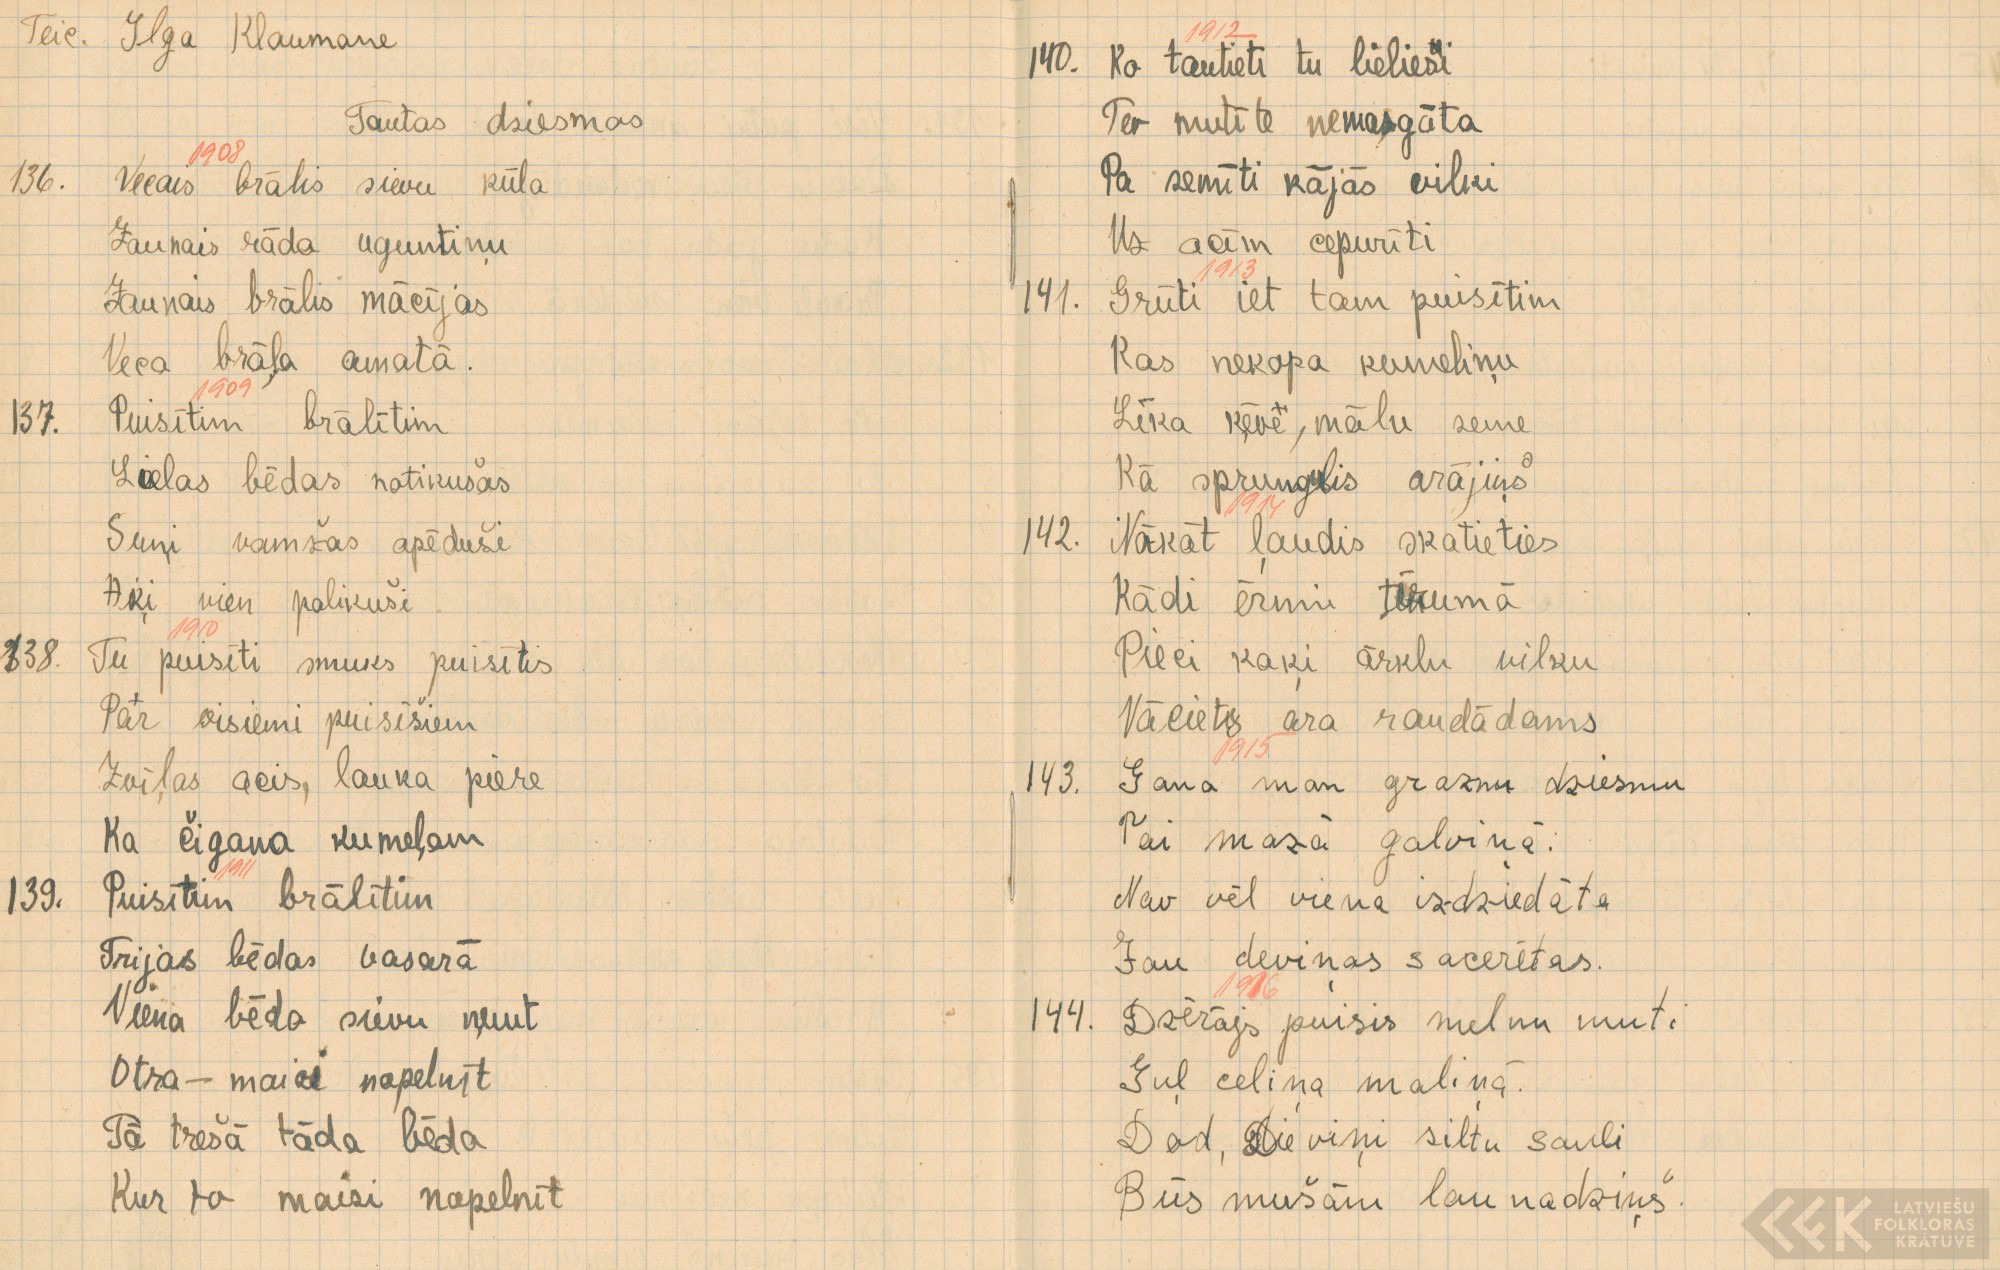 Teic. Ilga Klaumane
Tautas dziesmas
1908
136. Vecais brālis sievu kūla
Jaunais rāda uguntiņu
Jaunais brālis mācījas
Veca brāļa amatā.
1909
137. Puisītim brālītim
Lielas bēdas notikušas
Suņi vamžas apēduši
Aķi vien palikuši
1910
138. Tu puisīti smuks puisītis
Pār visiemi puisīšiem
Zvīļas acis, lauka piere
Ka čigana kumeļam
1911
139. Puisītim brālītim
Trijas bēdas vasarā
Viena bēda sievu ņemt
Otra — maizi nopelnīt
Tā trešā tāda bēda
Kur to maizi nopelnīt
1912
140. Ko tautieti tu lielieši
Tev mutīte nemazgāta
Pa zemīti kājās vilki
Uz acīm cepurīti
1913
141. Grūti iet tam puisītim
Kas nekopa kumeliņu
Līka ķēvē, mālu zeme
Kā sprungulis arājiņš
1914
142. Nākāt ļaudis skatieties
Kādi ērmi tīrumā
Pieci kaķi ārklu vilku
Vācietis ara raudādams
1915
143. Gana man graznu dziesmu
Tai mazā galviņā:
Nav vēl viena izdziedāta
Jau deviņas sacerētas.
1916
144. Dzērājs puisis melnu muti
Guļ celiņa maliņā.
Dod, Dieviņi siltu sauli
Būs mušām launadziņš.
LATVIEŠU
FOLKLORAS
KRĀTUVE